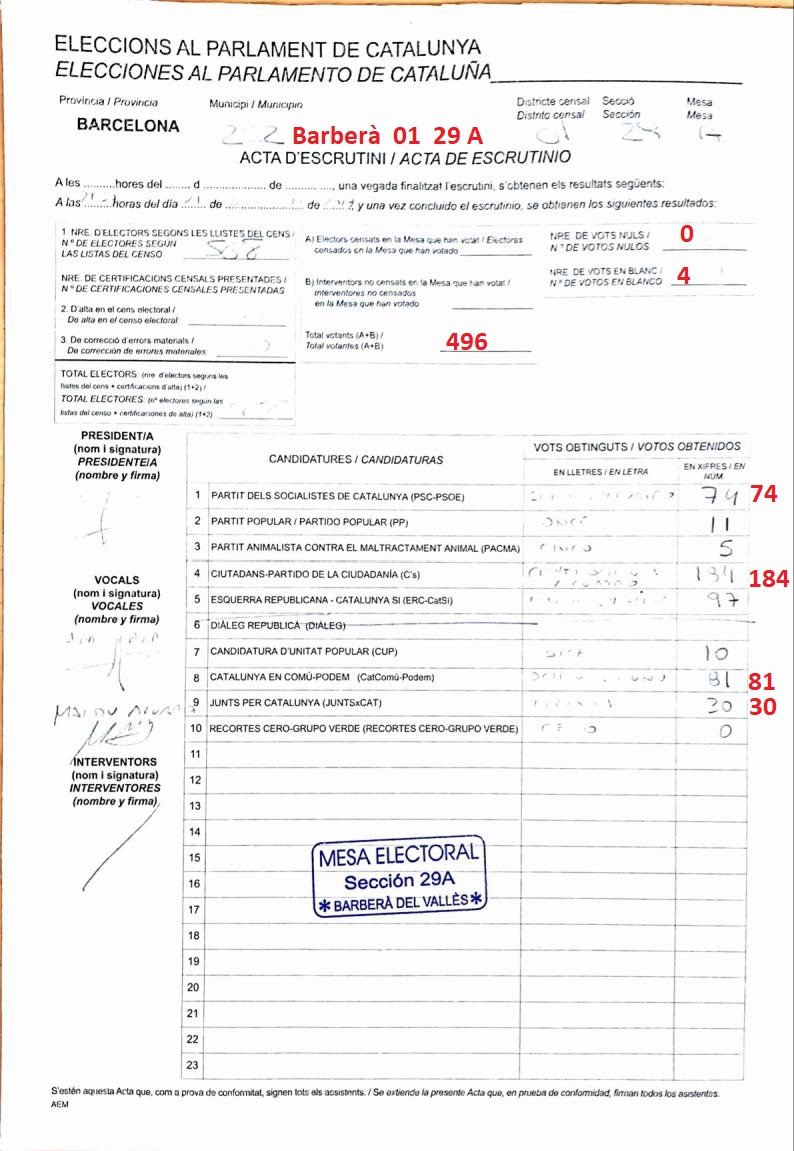 ELECCIONS AL PARLAMENT DE CATALUNYA
ELECCIONES AL PARLAMENTO DE CATALUÑA
Província / Provincia Municipi / Municipio Districte censal Secció Mesa
Distrito censal Sección Mesa
BARCELONA Barberà 01 29 A
ACTA D'ESCRUTINI / ACTA DE ESCRUTINIO
A les ..........hores del ........ d ................. de .............., una vegada finalitzat l'escrutini, s'obtenen els resultats següents:
A las horas del día de de y una vez concluido el escrutinio, se obtienen los siguientes resultados:
1 NRE. D'ELECTORS SEGONS LES LLISTES DEL CENS /
Nº DE ELECTORES SEGÚN
LAS LISTAS DEL CENSO
NRE. DE CERTIFICACIONS CENSALS PRESENTADES /
Nº DE CERTIFICACIONES CENSALES PRESENTADAS
2. D'alta en el cens electoral /
De alta en el censo electoral:
3. De correcció d'errors materials /
De corrección de errores materiales
TOTAL ELECTORS: (nre d'electors segons les
llistes del cens + certificacions d'alta) (1+2) /
TOTAL ELECTORES: (nº electores según las
listas del censo + certificaciones de alta) (1+2)
A) Electors censats en la Mesa que han votat / Electores
censados en la Mesa que han votado
B) Interventors no censats en la Mesa que han votat /
Interventores no censados
en la Mesa que han votado
Total votants (A+B) /
Total votantes (A+B) 496
NRE. DE VOTS NULS / 0
Nº DE VOTOS NULOS
NRE. DE VOTS EN BLANC / 4
Nº DE VOTOS EN BLANCO
PRESIDENT/A
(nom i signatura)
PRESIDENTE/A
(nombre y firma)
VOCALS
(nom i signatura)
VOCALES
(nombre y firma)
INTERVENTORS
(nom i signatura)
INTERVENTORES
(nombre y firma)
CANDIDATURES / CANDIDATURAS VOTS OBTINGUTS / VOTOS OBTENIDOS
EN LLETRES / EN LETRA EN XIFRES / EN NUM.
1 PARTIT DELS SOCIALISTES DE CATALUNYA (PSC-PSOE) 74 74
2 PARTIT POPULAR / PARTIDO POPULAR (PP) ONCE 11
3 PARTIT ANIMALISTA CONTRA EL MALTRACTAMENT ANIMAL (PACMA) CINCO 5
4 CIUTADANS-PARTIDO DE LA CIUDADANÍA (C's) 184 184
5 ESQUERRA REPUBLICANA - CATALUNYA SI (ERC-CatSi) 97
6 DIÀLEG REPUBLICÀ (DIÀLEG)
7 CANDIDATURA D'UNITAT POPULAR (CUP) 10
8 CATALUNYA EN COMÚ-PODEM (CatComú-Podem) 81 81
9 JUNTS PER CATALUNYA (JUNTSxCAT) 30 30
10 RECORTES CERO-GRUPO VERDE (RECORTES CERO-GRUPO VERDE) 0
11
12
13
14
15
16
17
18
19
20
21
22
23
MESA ELECTORAL
Sección 29A
* BARBERÀ DEL VALLÈS *
S'estén aquesta Acta que, com a prova de conformitat, signen tots els assistents. / Se extiende la presente Acta que, en prueba de conformidad, firman todos los asistentes.
AEM